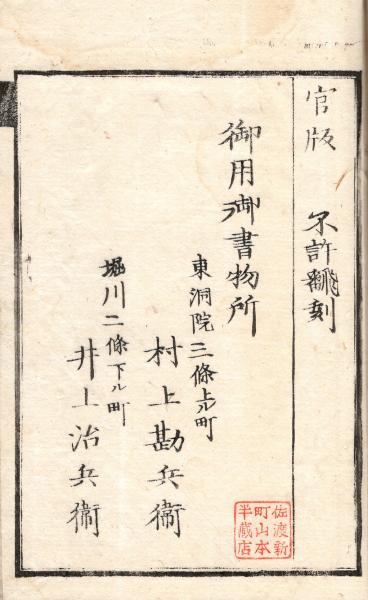 官版 不許翻刻
御用御書物所
東洞院三條上ル町
村上勘兵衛
堀川二條下ル町
井上治兵衛
佐渡新
町山本
半蔵店